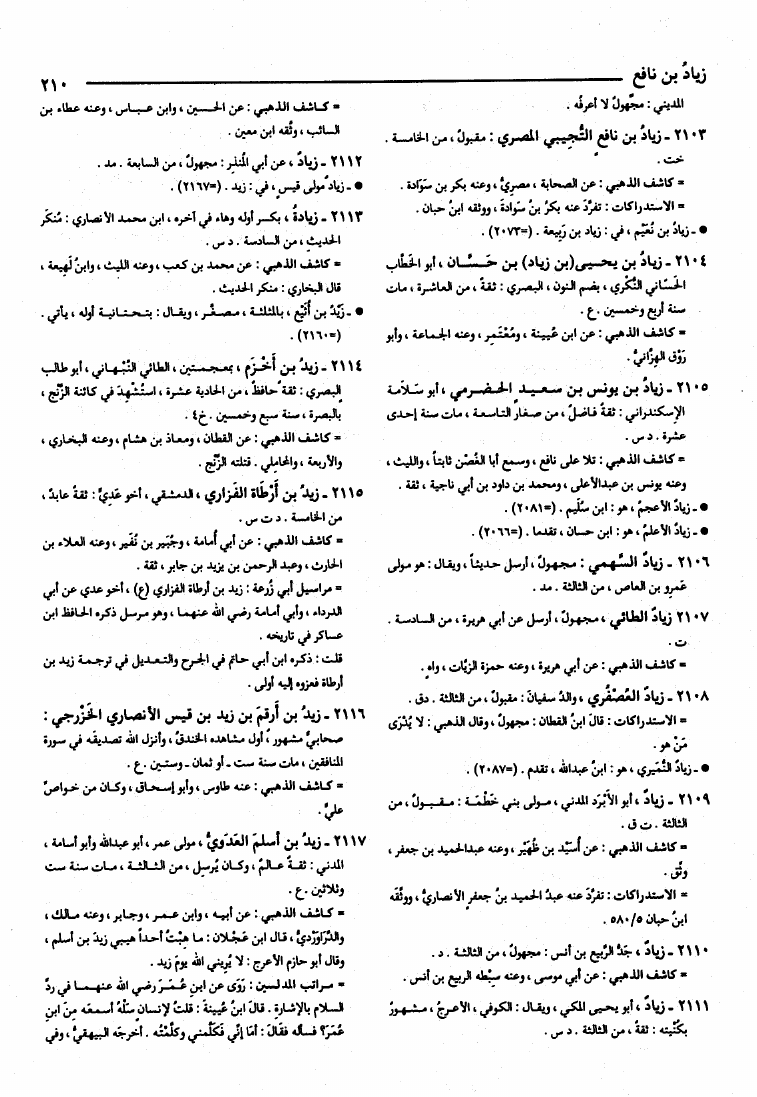 زيادُ بن نافع ٢١٠
المديني : مجهولٌ لا أعرفُه .
٢١٠٣ ـ زيادُ بن نافعٍ التُّجيبي المصري : مقبولٌ ، من الخامسة .
خت .
= كاشف الذهبي : عن الصحابة ، مصريٌّ ، وعنه بكر بن سَوَادة .
= الاستدراكات : تفرَّدَ عنه بكرُ بنُ سَوادةَ ، ووثقه ابنُ حبان .
● ـ زيادُ بن نُعَيْم ، في : زياد بن رَبِيعة . (=٢٠٧٣) .
٢١٠٤ ـ زيادُ بن يحيـى(بن زياد) بن حَسَّـان ، أبو الخطَّاب
الحَسَّاني النُّكْري ، بضم النون ، البصري : ثقةٌ ، من العاشرة ، مات
سنة أربع وخمسين .ع .
= كاشف الذهبي : عن ابن عُيينة ، ومُعْتَمر ، وعنه الجماعة ، وأبو
رَوْق الهِزَّانيُّ .
٢١٠٥ ـ زيادُ بن يونس بن سعيدٍ الحضرمي ، أبو سَلَامة
الإسكندراني : ثقةٌ فاضلٌ ، من صغار التاسعة ، مات سنة إحدى
عشرة . د س .
= كاشف الذهبي : تلا على نافع ، وسمع أبا الغُصْن ثابتاً ، والليث ،
وعنه يونس بن عبدالأعلى ، ومحمد بن داود بن أبي ناجية ، ثقة .
● ـ زيادٌ الأعجمُ ، هو : ابن سُليم . (=٢٠٨١) .
● ـ زيادٌ الأعلمُ ، هو : ابن حسان ، تقدما . (=٢٠٦٦) .
٢١٠٦ ـ زيادٌ السَّهمي : مجهولٌ ، أرسل حديثاً ، ويقال : هو مولى
عَمرو بن العاص ، من الثالثة . مد .
٢١٠٧ زيادٌ الطائي ، مجهولٌ ، أرسل عن أبي هريرة ، من السادسة .
ت .
= كاشف الذهبي : عن أبي هريرة ، وعنه حمزة الزيَّات ، واهٍ .
٢١٠٨ ـ زيادٌ العُصْفُري ، والدُ سفيانَ : مقبولٌ ، من الثالثة . دق .
= الاستدراكات : قالَ ابنُ القطان : مجهولٌ ، وقال الذهبي : لا يُدْرَى
مَنْ هو .
● ـ زيادٌ النُّمَيري ، هو : ابنُ عبدالله ، تقدم . (=٢٠٨٧) .
٢١٠٩ ـ زيادٌ ، أبو الأبْرَد المدني ، مـولى بني خَطْمَة : مقـبـولٌ ، من
الثالثة . ت ق .
= كاشف الذهبي : عن أُسَيْد بن ظُهَيْر ، وعنه عبدالحميد بن جعفر ،
وثِّق .
= الاستدراكات : تفرَّدَ عنه عبدُ الحميد بنُ جعفرٍ الأنصاريُّ ، ووثَّقه
ابنُ حبان ٥٨٠/٥ .
٢١١٠ ـ زيادٌ ، جَدُّ الرَّبيع بن أنس : مجهولٌ ، من الثالثة . د .
= كاشف الذهبي : عن أبي موسى ، وعنه سِبْطه الربيع بن أنس .
٢١١١ ـ زيادٌ ، أبو يحيى المكي ، ويقال : الكوفي ، الأعرجُ ، مشهورٌ
بكنْيته : ثقةٌ ، من الثالثة . د س .
= كاشف الذهبي : عن الحسين ، وابن عبـاس ، وعنه عطاء بن
السائب ، وثَّقه ابن معين .
٢١١٢ ـ زيادٌ ، عن أبي المُنذر : مجهولٌ ، من السابعة . مد .
● ـ زيادٌ مولى قيسٍ ، في : زيد . (=٢١٦٧) .
٢١١٣ ـ زيادةُ ، بكسر أوله وهاء في آخره ، ابن محمد الأنصاري : مُنكَر
الحديث ، من السادسة . د س .
= كاشف الذهبي : عن محمد بن كعب ، وعنه الليث ، وابنُ لَهيعة ،
قال البخاري : منكر الحديث .
● ـ زَيْدُ بن أُثَيْع ، بالمثلثة ، مصـغَّر ، ويقال : بتـحتـانية أوله ، يأتي .
(=٢١٦٠) .
٢١١٤ ـ زيدُ بن أَخْـزَم ، بمعجمـتين ، الطائي النَّبْـهاني ، أبو طالب
البصري : ثقةٌ حافظٌ ، من الحادية عشرة ، استُشْهِدَ في كائنة الزَّنْج ،
بالبصرة ، سنة سبع وخمسين . خ٤ .
= كاشف الذهبي : عن القطان ، ومعاذ بن هشام ، وعنه البخاري ،
والأربعة ، والمحاملي . قتلته الزَّنْج .
٢١١٥ ـ زيدُ بن أَرْطَاةَ الفَزاري ، الدمشقي ، أخو عَديّ : ثقةٌ عابدٌ ،
من الخامسة . د ت س .
= كاشف الذهبي : عن أبي أُمامة ، وجُبَير بن نُفَير ، وعنه العلاء بن
الحارث ، وعبد الرحمن بن يزيد بن جابر ، ثقة .
= مراسيل أبي زُرعة : زيد بن أرطاة الفزاري (ع) ، أخو عدي عن أبي
الدرداء ، وأبي أمامة رضي الله عنهمـا ، وهو مرسل ذكره الحافظ ابن
عساكر في تاريخه .
قلت : ذكره ابن أبي حاتم في الجرح والتعديل في ترجمة زيد بن
أرطاة فعزوه إليه أولى .
٢١١٦ ـ زيدُ بن أرقمَ بن زيد بن قيس الأنصاري الخَزْرجي :
صحابيٌّ مشهورٌ ، أول مشاهده الخندقُ ، وأنزل الله تصديقَه في سورة
المنافقين ، مات سنة ست ـ أو ثمان ـ وستين .ع .
= كـاشف الذهبي : عنه طاوس ، وأبو إسـحاق ، وكان من خـواصِّ
عليٍّ .
٢١١٧ ـ زيدُ بن أسلمَ العَدَويُّ ، مولى عمر ، أبو عبدالله وأبو أسامة ،
المدني : ثقـةٌ عـالـمٌ ، وكـان يُرسِل ، من الثـالثـة ، مـات سنة ست
وثلاثين .ع .
= كاشف الذهبي : عن أبيه ، وابن عمـر ، وجـابر ، وعنه مـالك ،
والدَّرَاوَرْديُّ ، قال ابن عَجْلان : ما هِبْتُ أحداً هيبي زيدَ بن أسلم ،
وقال أبو حازم الأعرج : لا يُريني الله يومَ زيد .
= مـراتب المدلسين : رَوَى عن ابنِ عُـمَرَ رضي الله عنهمـا في ردِّ
السلام بالإشارة . قالَ ابنُ عُيينةَ : قلتُ لإنسانٍ سَلْهُ أسمعَه مِنَ ابنِ
عُمَرَ؟ فسأله فقَالَ : أمَا إنِّي فَكَلَّمني وكلَّمْتُه . أخرجَه البيهقيُّ ، وفي